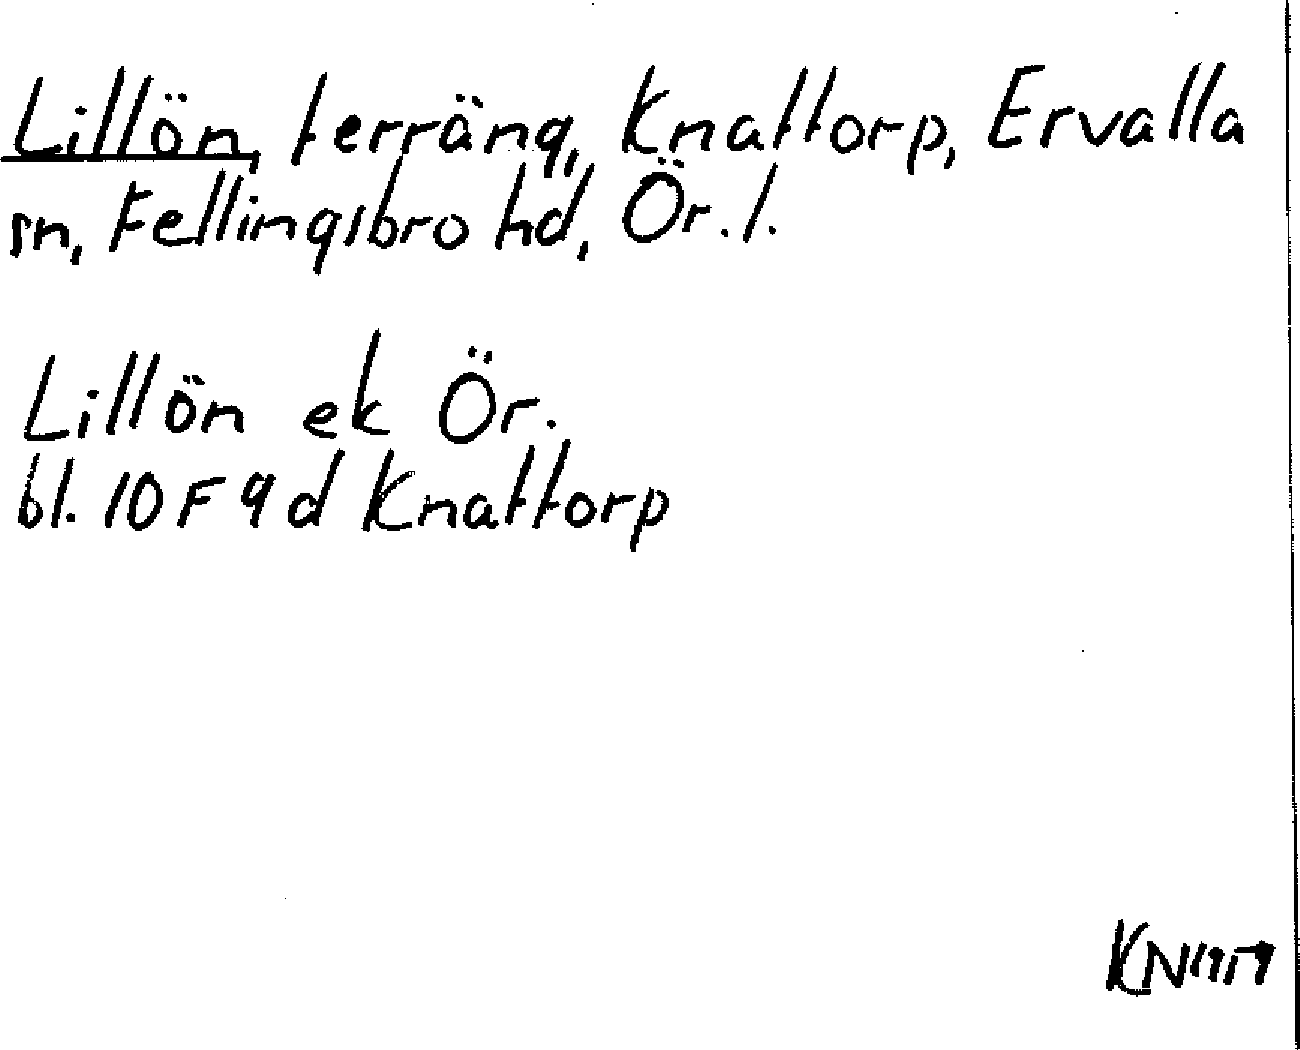 Lillön, terräng, Knattorp, Ervalla
sn, Fellingsbro hd, Ör. l.
Lillön ek Ör.
bl. 10 F 9 d Knattorp